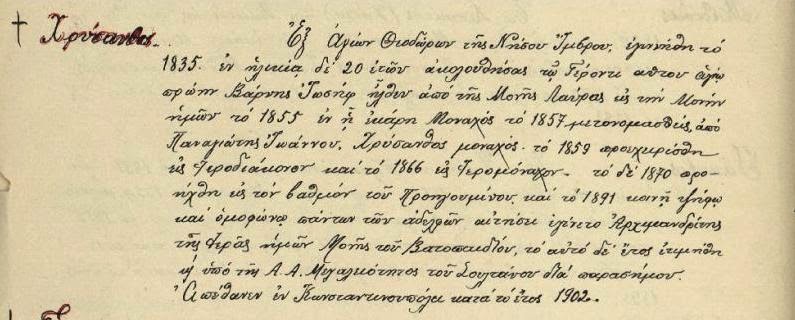 † Χρύσανθος.
Ἐξ Ἁγίων Θεοδώρων τῆς Νήσου Ἴμβρου, ἐγεννήθη τὸ
1835. ἐν ἡλικίᾳ δὲ 20 ἐτῶν ἀκολουθήσας τῷ Γέροντι αὐτοῦ ἁγίῳ
πρώην Βάρνης Ἰωσήφ ἦλθεν ἀπὸ τῆς Μονῆς Λαύρας εἰς τὴν Μονὴν
ἡμῶν τὸ 1855 ἐν ᾗ ἐκάρη Μοναχὸς τὸ 1857 μετονομασθεὶς, ἀπὸ
Παναγιώτης Ἰωάννου, Χρύσανθος μοναχός. τὸ 1859 προυχειρίσθη
εἰς Ἱεροδιάκονον καὶ τὸ 1866 εἰς Ἱερομόναχον. τὸ δὲ 1870 προ-
ήχθη εἰς τὸν βαθμὸν τοῦ Προηγουμένου, καὶ τὸ 1891 κοινῇ ψήφῳ
καὶ ὁμοφώνῳ πάντων τῶν ἀδελφῶν αἰτήσει ἐγένετο Ἀρχιμανδρίτης
τῆς Ἱερᾶς ἡμῶν Μονῆς τοῦ Βατοπαιδίου, τὸ αὐτὸ δὲ ἔτος ἐτιμήθη
ὑπὸ τῆς Α. Α. Μεγαλειότητος τοῦ Σουλτάνου διὰ παρασήμου.
Ἀπέθανεν ἐν Κωνσταντινουπόλει κατὰ τὸ ἔτος 1902.